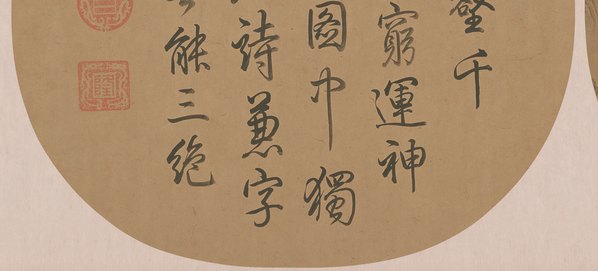 壑千
窮運神
圖中獨
詩兼字
能三絕